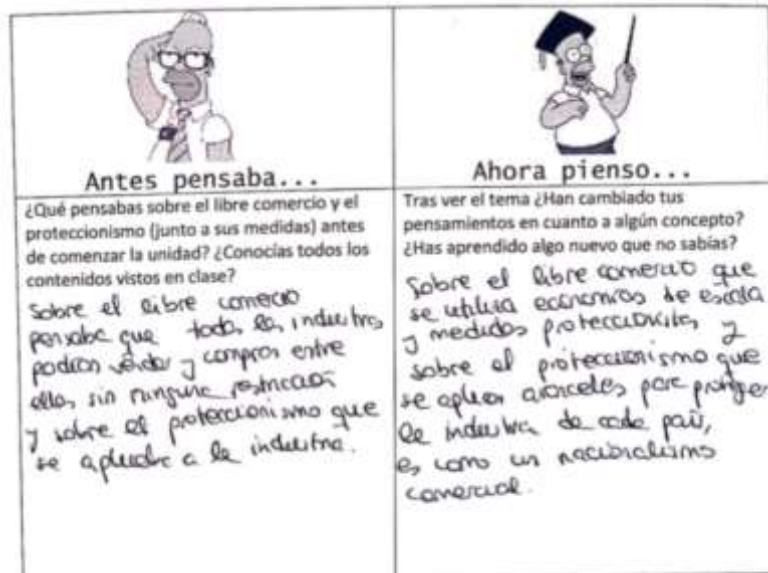 Antes pensaba...
¿Qué pensabas sobre el libre comercio y el
proteccionismo (junto a sus medidas) antes
de comenzar la unidad? ¿Conocías todos los
contenidos vistos en clase?
Sobre el libre comercio
pensaba que todas las industrias
podían vender y comprar entre
ellas sin ninguna restricción
y sobre el proteccionismo que
se aplicaba a la industria.
Ahora pienso...
Tras ver el tema ¿Han cambiado tus
pensamientos en cuanto a algún concepto?
¿Has aprendido algo nuevo que no sabías?
Sobre el libre comercio que
se utiliza economías de escala
y medidas proteccionistas y
sobre el proteccionismo que
se aplican aranceles para proteger
la industria de cada país,
es como un nacionalismo
comercial.